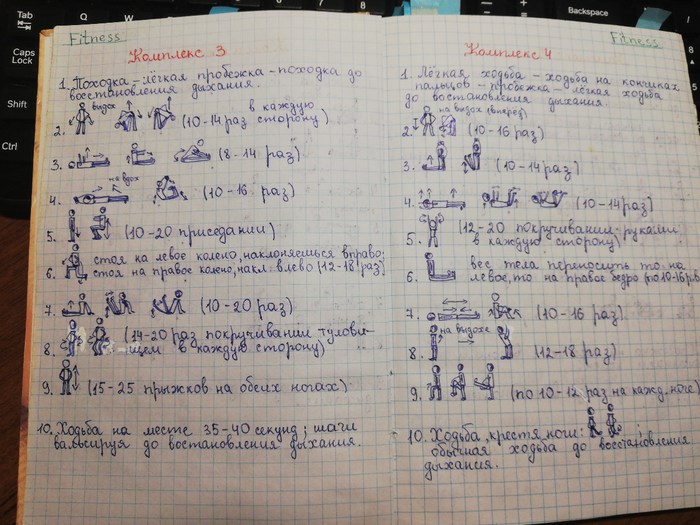 Tab
Q
W
E
P
Backspace
Caps Lock
Shift
Ctrl
Fitness
Комплекс 3
1. Походка – лёгкая пробежка – походка до
востановления дыхания.
2. выдох (10-14 раз в каждую сторону)
3. (8-14 раз)
4. на вдох (10-16 раз)
5. (10-20 приседаний)
6. стоя на левое колено, наклоняемься вправо;
стоя на правое колено, накл. влево (12-18 раз)
7. (10-20 раз)
8. (14-20 раз покручивании тулови-
щем в каждую сторону)
9. (15-25 прыжков на обеих ногах)
10. Ходьба на месте 35-40 секунд; шаги
вальсируя до востановления дыхания.
Fitness
Комплекс 4
1. Лёгкая ходьба – ходьба на кончиках
пальцов – пробежка – лёгкая ходьба
до востановления дыхания.
2. на выдох (вперёд) (10-16 раз)
3. (10-14 раз)
4. (10-14 раз)
5. (12-20 покручивании руками
в каждую сторону)
6. вес тела переносить то на
левое, то на правое бедро (по 10-16 раз
7. (10-16 раз)
8. на выдохе (12-18 раз)
9. (по 10-12 раз на кажд. ноге)
10. Ходьба, крестя ноги:
обычная ходьба до восстановления
дыхания.